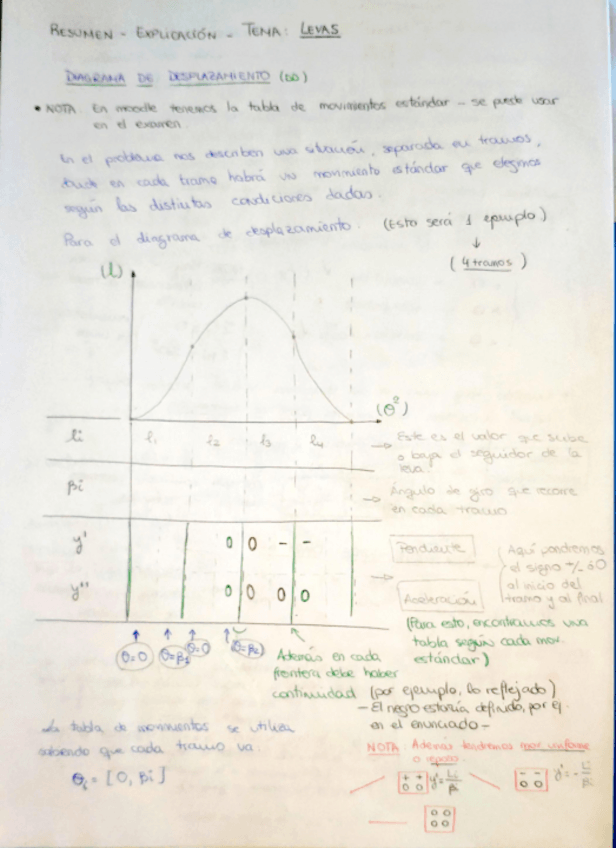 RESUMEN - EXPLICACIÓN - TEMA: LEVAS
DIAGRAMA DE DESPLAZAMIENTO (DD)
• NOTA. En moodle tenemos la tabla de movimientos estándar - se puede usar
en el examen.
En el problema nos describen una situación, separada en tramos,
donde en cada tramo habrá un movimiento estándar que elegimos
según las distintas condiciones dadas.
Para el diagrama de desplazamiento. (Esto será 1 ejemplo)
↓
(4 tramos)
(L)
(θ²)
li l₁ l₂ l₃ l₄ → Este es el valor que sube
o baja el seguidor de la
leva.
βi → Ángulo de giro que recorre
en cada tramo
y' 0 0 - - Pendiente
y'' 0 0 0 0 → Aceleración
Aquí pondremos
el signo +/- ó 0
al inicio del
tramo y al final
(Para esto, encontramos una
tabla según cada mov.
estándar)
θ=0 θ=β₁ θ=0 θ=β₂
Además en cada
frontera debe haber
continuidad (por ejemplo, lo reflejado)
- El negro estaría definido, por ej.
en el enunciado -
La tabla de movimientos se utiliza
sabiendo que cada tramo va:
θi = [0, βi]
NOTA: Además tendremos mov. uniforme
o reposo.
+ + y' = Li/β
0 0
- - y' = - L/β
0 0
0 0
0 0